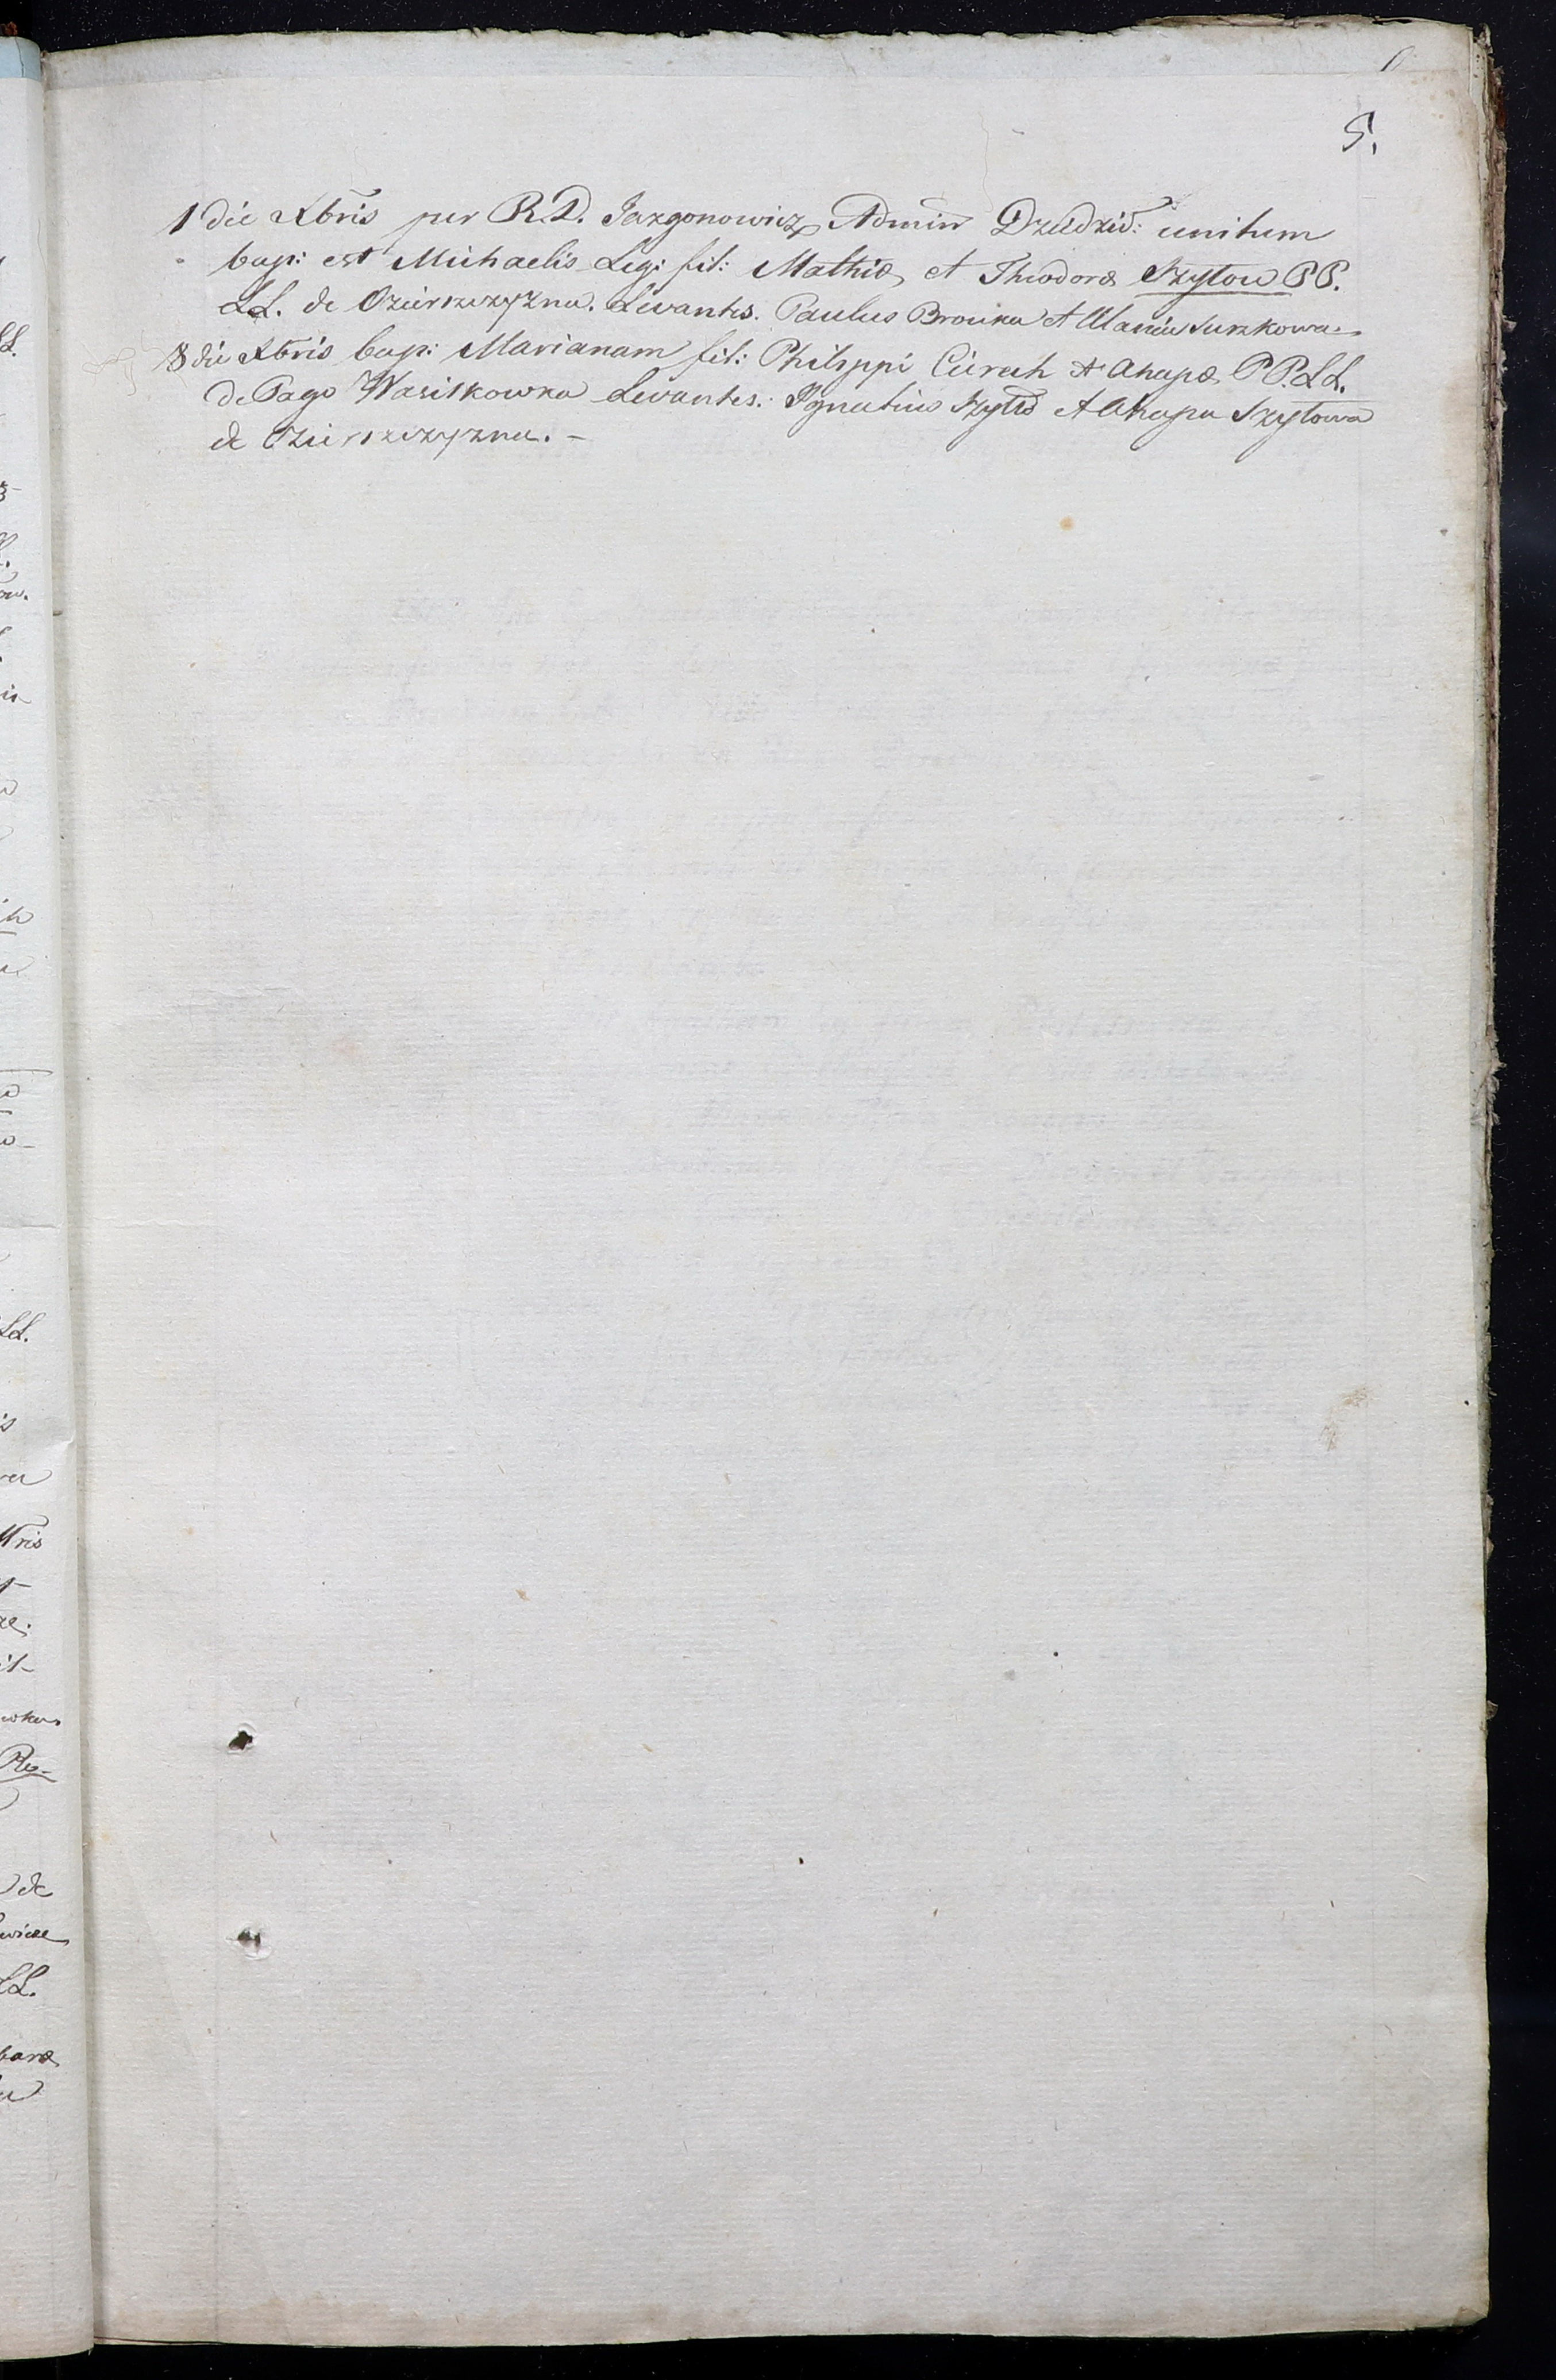 5.
1 die Xbris per R.D. Jazgonowicz Admin Dzudzic: unitum
bap: est Michaelis Legi: fil: Mathiæ et Theodoræ Szytow PP.
LL. de Ozierszczyzna. Levantes. Paulus Brouka et Maria Surkowa.
8 die Xbris bap: Marianam fil: Philippi Cierech et Ahapæ PP.LL.
de Pago Wasilkowka Levantes: Ignatius Szyto et Ahapa Szytowa
de Ozierszczyzna. -